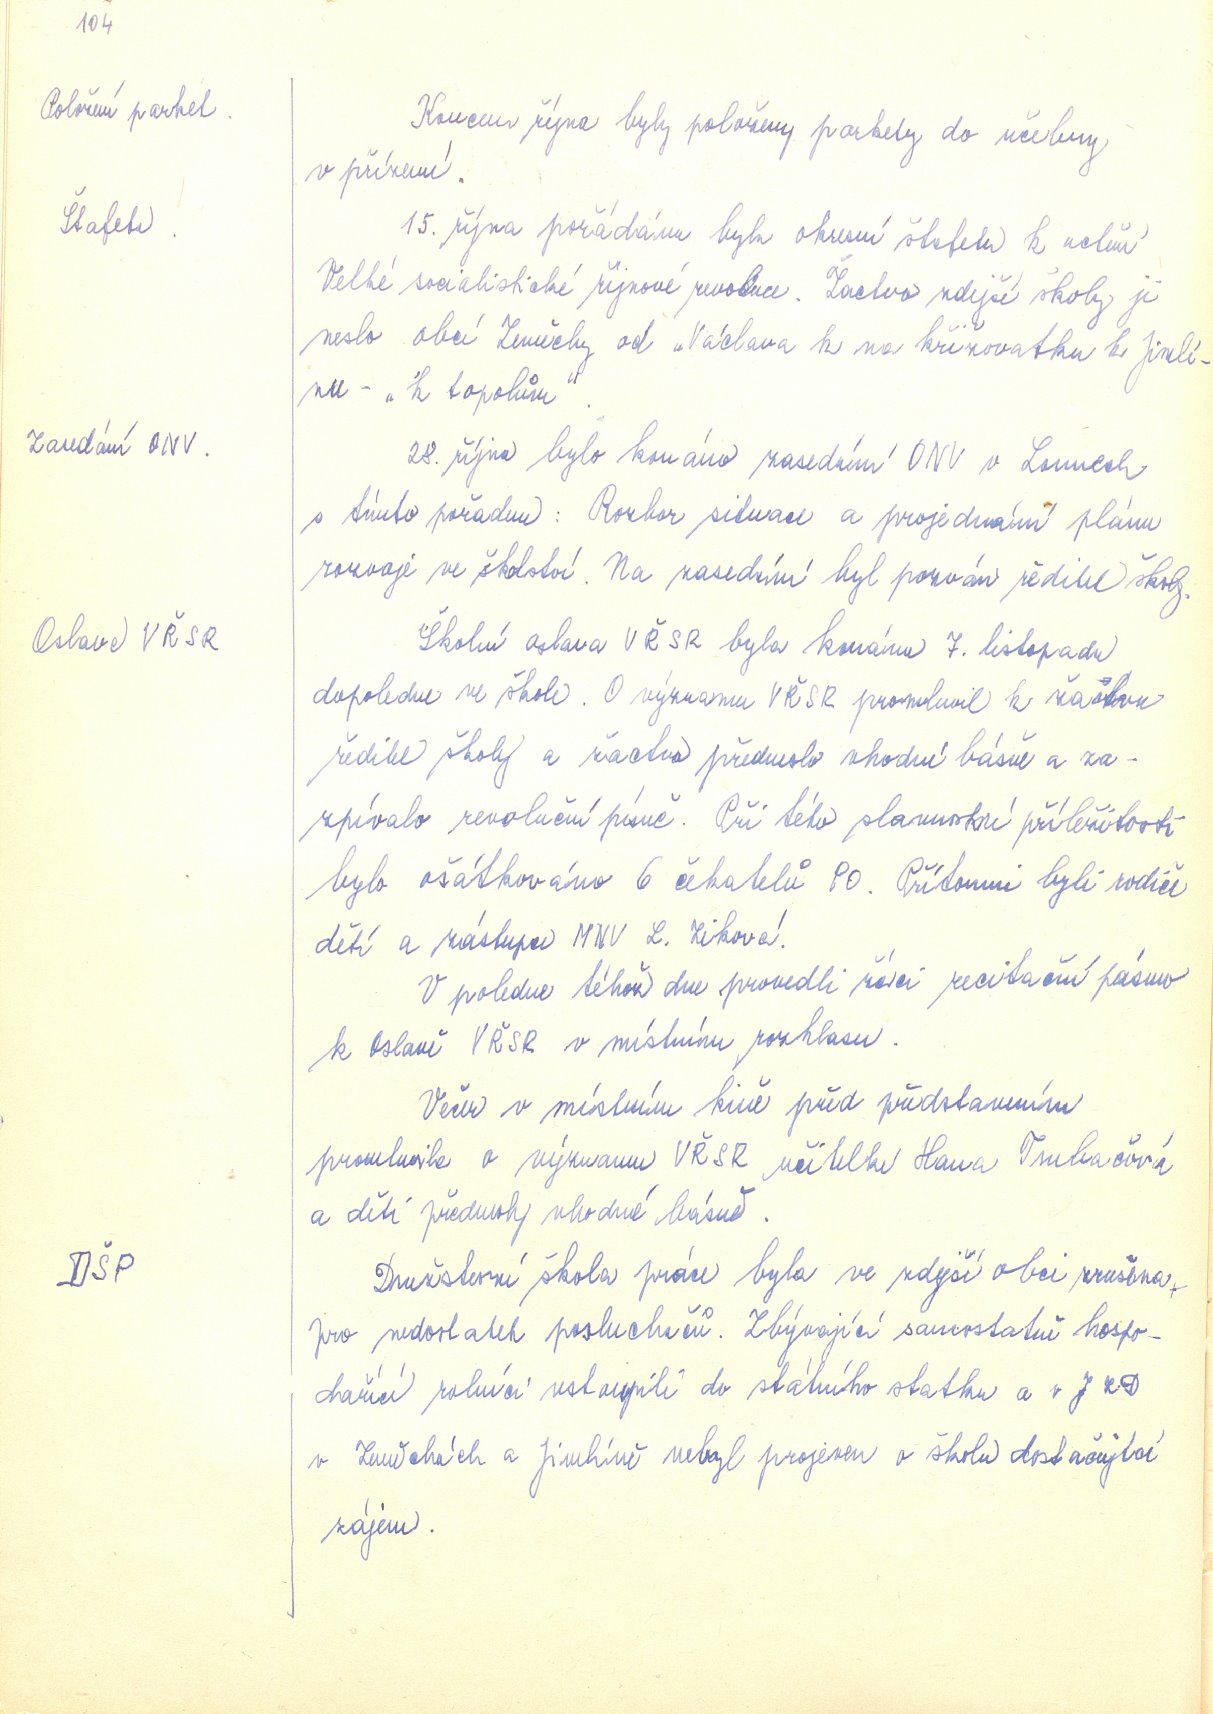 104
Položení parket.
Koncem října byly položeny parkety do učebny
v přízemí.
Štafeta.
15. října pořádána byla okresní štafeta k uctění
Velké socialistické říjnové revoluce. Žactvo zdejší školy ji
neslo obcí Zeměchy od „Václava k na křižovatku k Jimlí-
nu - „k topolům".
Zasedání ONV.
28. října bylo konáno zasedání ONV v Lounech
s tímto pořadem: Rozbor situace a projednání plánu
rozvoje ve školství. Na zasedání byl pozván ředitel školy.
Oslava VŘSR
Školní oslava VŘSR byla konána 7. listopadu
dopoledne ve škole. O významu VŘSR promluvil k žactvu
ředitel školy a žactvo předneslo vhodné básně a za-
zpívalo revoluční písně. Při této slavnostní příležitosti
bylo ošátkováno 6 čekatelů PO. Přítomni byli rodiče
dětí a zástupce MNV L. Ziková.
V poledne téhož dne provedli žáci recitační pásmo
k Oslavě VŘSR v místním rozhlasu.
Večer v místním kině před představením
promluvila o významu VŘSR učitelka Hana
a děti přednesly vhodné básně.
DŠP
Družstevní škola práce byla ve zdejší obci zrušena
pro nedostatek posluchačů. Zbývající samostatně hospo-
dařící rolníci vstoupili do státního statku a v JZD
v Zeměchách a Jimlíně nebyl projeven o školu dostačující
zájem.